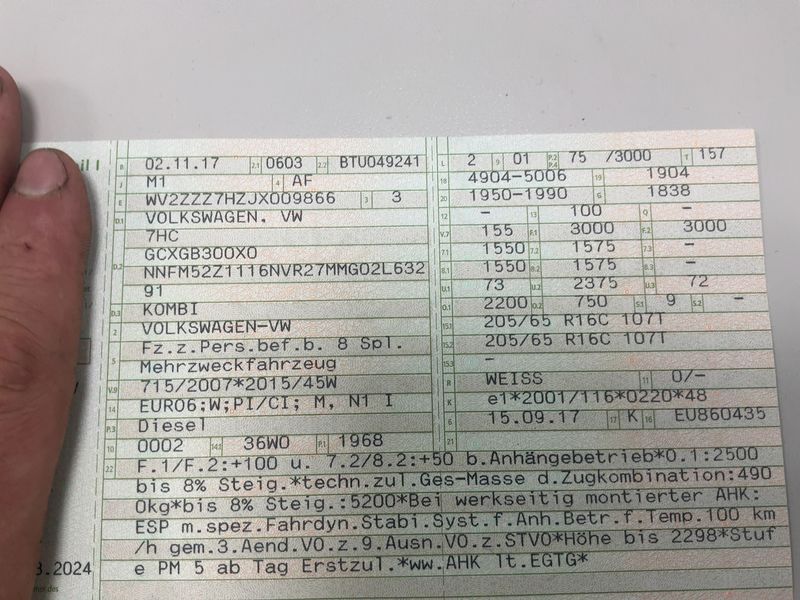 B 02.11.17 2.1 0603 2.2 BTU049241
J M1 4 AF
E WV2ZZZ7HZJX009866 3 3
D.1 VOLKSWAGEN, VW
7HC
D.2 GCXGB300X0
NNFM52Z1116NVR27MMG02L632
91
D.3 KOMBI
2 VOLKSWAGEN-VW
5 Fz.z.Pers.bef.b. 8 Spl.
Mehrzweckfahrzeug
V.9 715/2007*2015/45W
14 EURO6;W;PI/CI; M, N1 I
P.3 Diesel
10 0002 14.1 36W0 P.1 1968
L 2 9 01 P.2 P.4 75 /3000 T 157
18 4904-5006 19 1904
20 1950-1990 G 1838
12 - 13 100 Q -
V.7 155 F.1 3000 F.2 3000
7.1 1550 7.2 1575 7.3 -
8.1 1550 8.2 1575 8.3 -
U.1 73 U.2 2375 U.3 72
O.1 2200 O.2 750 S.1 9 S.2 -
15.1 205/65 R16C 107T
15.2 205/65 R16C 107T
15.3 -
R WEISS 11 0/-
K e1*2001/116*0220*48
6 15.09.17 17 K 16 EU860435
21
22 F.1/F.2:+100 u. 7.2/8.2:+50 b.Anhängebetrieb*0.1:2500
bis 8% Steig.*techn.zul.Ges-Masse d.Zugkombination:490
0kg*bis 8% Steig.:5200*Bei werkseitig montierter AHK:
ESP m.spez.Fahrdyn.Stabi.Syst.f.Anh.Betr.f.Temp.100 km
/h gem.3.Aend.VO.z.9.Ausn.VO.z.STVO*Höhe bis 2298*Stuf
e PM 5 ab Tag Erstzul.*ww.AHK lt.EGTG*
.2024